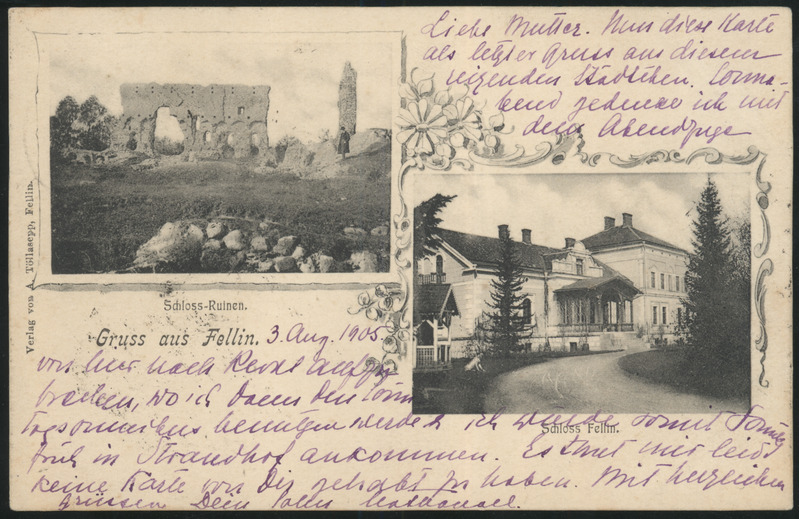 Liebe Mutter. Nur diese Karte
als letzter Gruss aus diesem
reizenden Städtchen. Sonna-
bend gedenke ich mit
dem Abendzuge
Verlag von A. Tõllasepp, Fellin.
Schloss-Ruinen.
Gruss aus Fellin. 3 Aug. 1905
von hier nach Reval
brechen, wo ich dann den Sonn
tagsomnibus benutzen werde u ich werde somit Sonntag
Schloss Fellin.
früh in Strandhof ankommen. Es thut mir leid
keine Karte von Dir gehabt zu haben. Mit herzlichen
Grüssen Dein Sohn